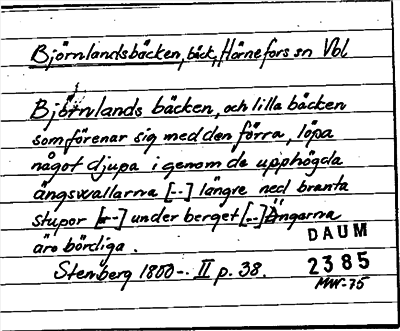 Björnlandsbäcken, bäck, Hörnefors sn Vbl
Björnlands bäcken, och lilla bäcken
som förenar sig med den förra, löpa
något djupa igenom de upphögda
ängswallarna [--] längre ned branta
stupor [--] under berget [--] Ängarna
äro bördiga.
Stenberg 1800-. II p. 38.
DAUM
2385
MW-75